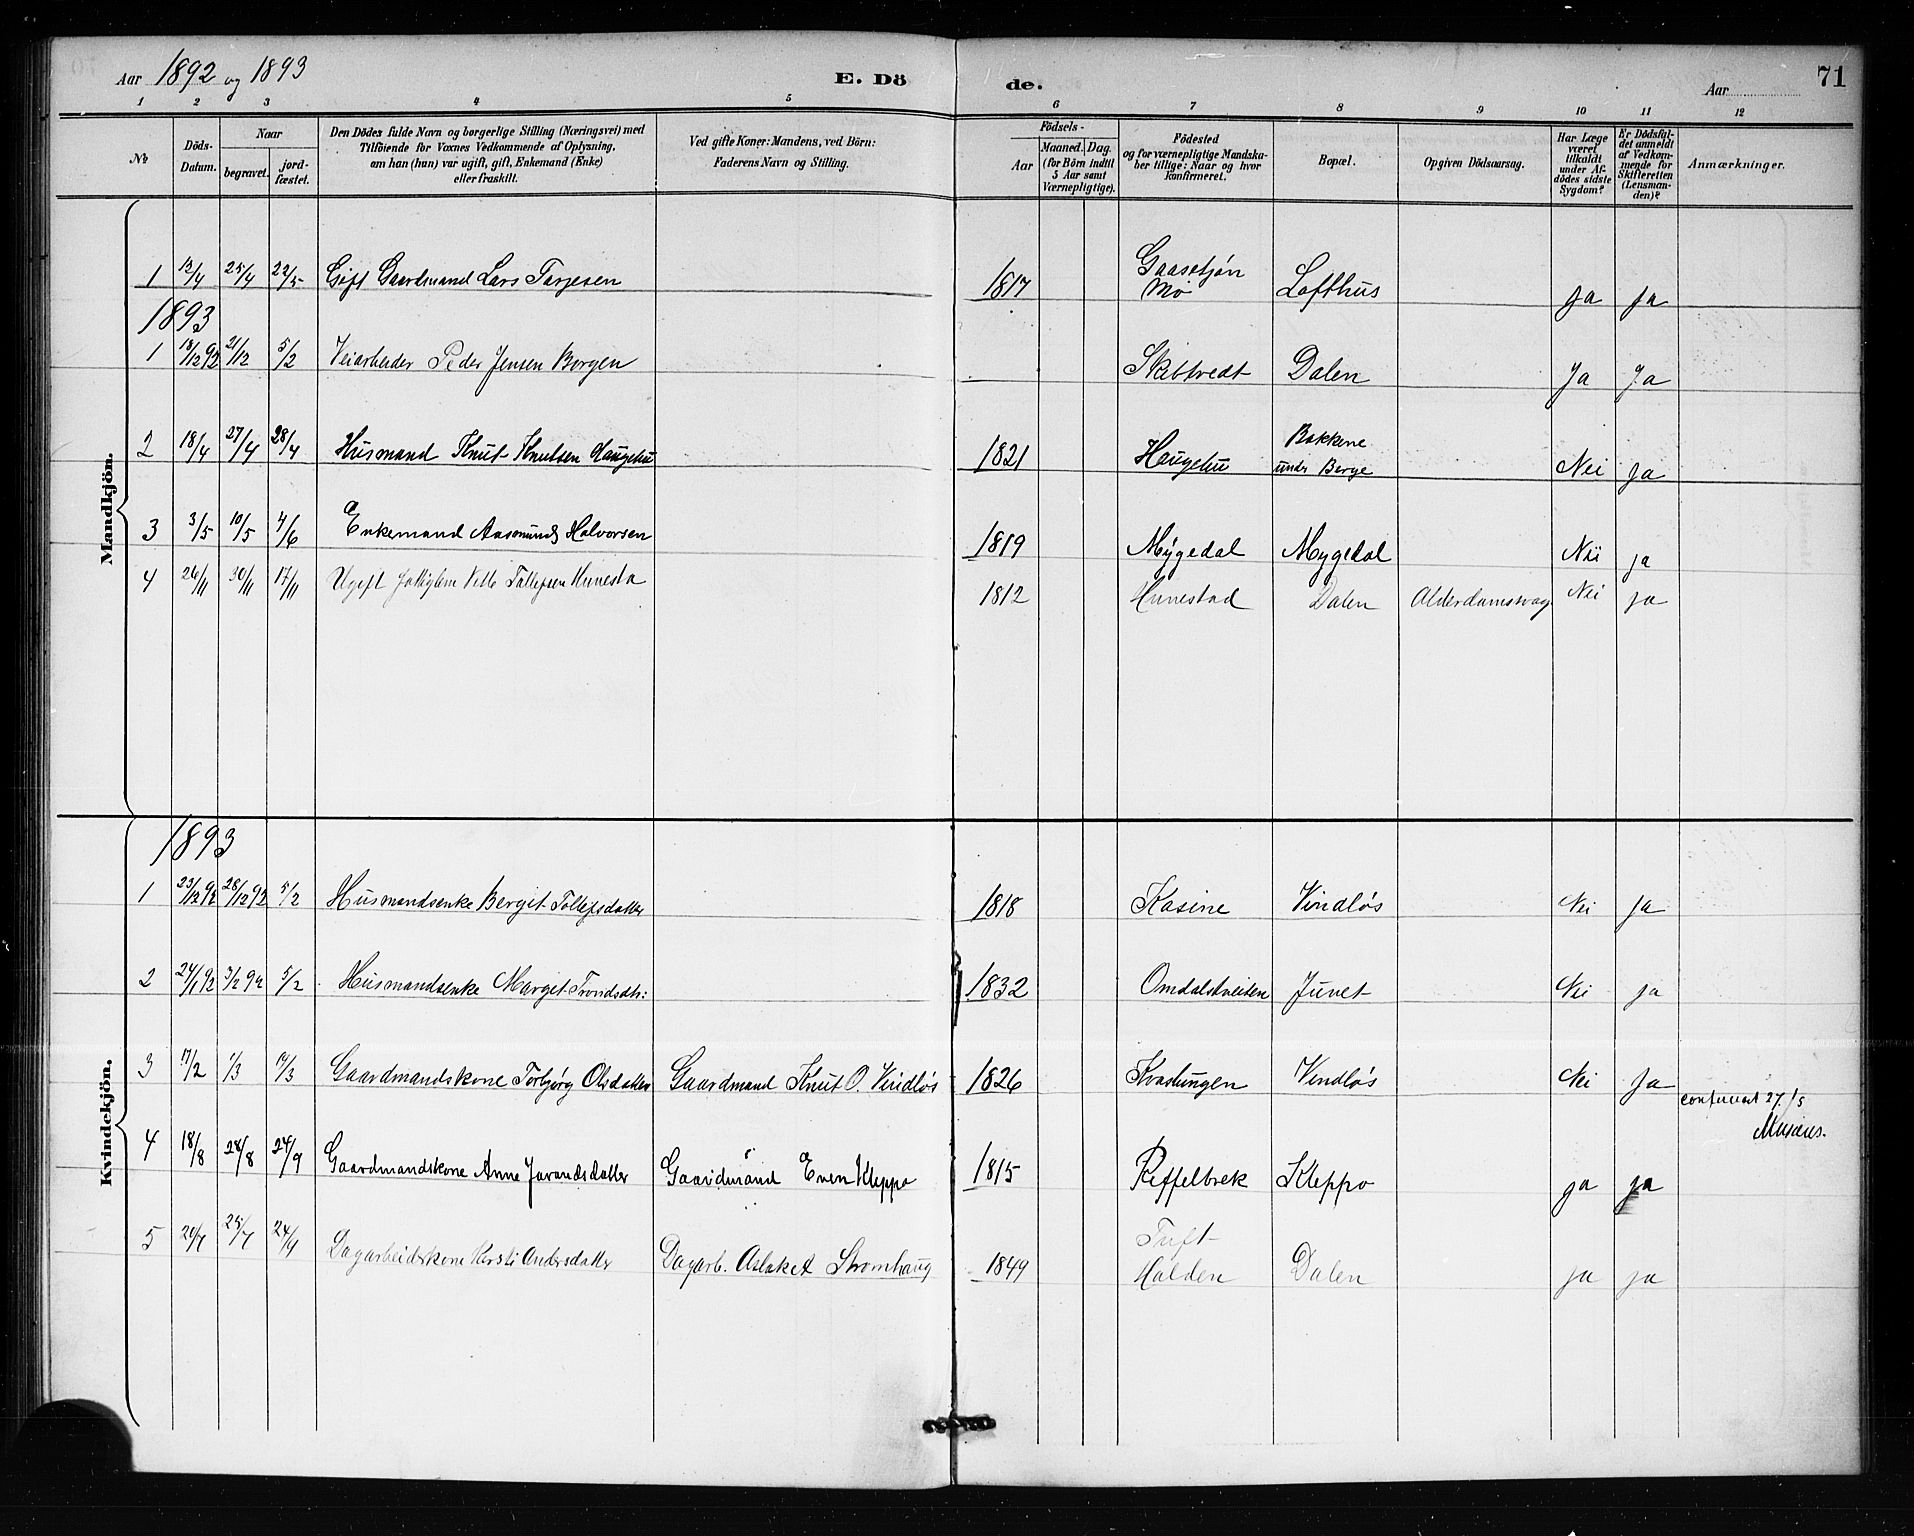 Aar 1892 og 1893
E. Dö
de.
Aar
71
1 2 3 4 5 6 7 8 9 10 11 12
No
Döds-Datum.
Naar
begravet.
jord-fæstet.
Den Dödes fulde Navn og borgerlige Stilling (Næringsvei) med
Tilföiende for Voxnes Vedkommende af Oplysning,
om han (hun) var ugift, gift, Enkemand (Enke)
eller fraskilt.
Ved gifte Koner: Mandens, ved Börn:
Faderens Navn og Stilling.
Födsels-
Aar
Maaned. Dag.
(for Börn indtil
5 Aar samt
Værnepligtige).
Födested
og for værnepligtige Mandska-
ber tillige: Naar og hvor
konfirmeret.
Bopæl.
Opgiven Dödsaarsag.
Har Læge
været
tilkaldt
under Af-
dödes sidste
Sygdom?
Er Dödsfal-
det anmeldt
af Vedkom-
mende for
Skifteretten
(Lensman-
den)?
Anmærkninger.
Mandkjön.
1 12/4 25/4 22/5 Gift Gaardmand Lars Tarjesen 1817 Gaasetjøn Mo Lofthus Ja Ja
1893
1 18/12 92 21/12 5/2 Veiarbeider Peder Jensen Borgen Skibtvedt Dalen Ja Ja
2 18/4 27/4 28/4 Husmand Knut Knutsen Haugehu 1821 Haugehu Bakkene under Berge Nei Ja
3 3/5 10/5 4/6 Enkemand Aasmund Halvorsen 1819 Mygedal Mygedal Nei ja
4 26/11 30/11 17/11 Ugift Tollefsen Hunesta 1812 Hunestad Dalen Alderdomssvag Nei ja
Kvindekjön.
1893
1 23/12 92 28/12 92 5/2 Husmandsenke Bergit Tollefsdatter 1818 Kasine Vindløs Nei Ja
2 24/1 92 3/2 92 5/2 Husmandsenke Marget Trondsdtr: 1832 Omdalstveiten Juvet Nei ja
3 17/2 1/3 /3 Gaardmandskone Torbjørg Olsdatter Gaardmand Knut O. Vindløs 1826 Kvastungen Vindløs Nei Ja
conferert 27./5
Musæus.
4 18/8 28/8 24/9 Gaardmandskone Anne Javandsdatter Gaardmand Even Kleppo 1815 Reffelbrek Kleppo ja ja
5 20/7 25/7 24/9 Dagarbeidskone Kersti Andersdatter Dagarb. Aslaket Stromhaug 1849 Tuft Halden Dalen ja ja